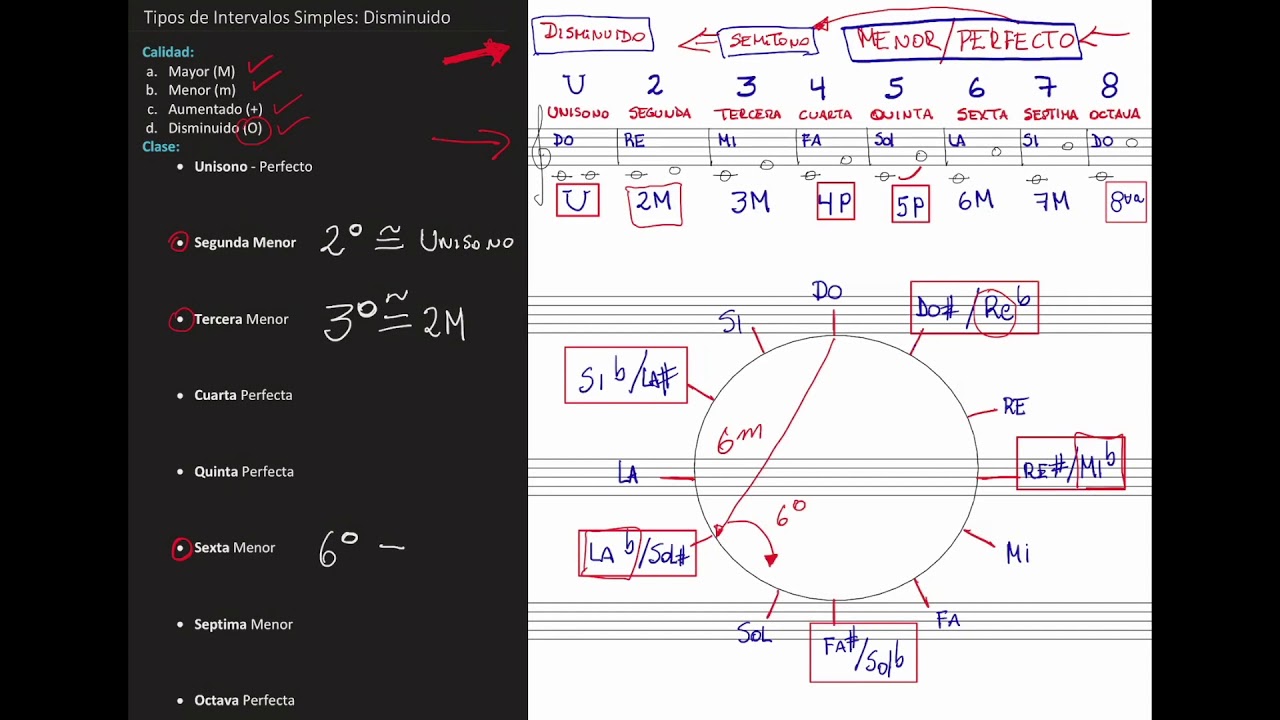 Tipos de Intervalos Simples: Disminuido
Calidad:
a. Mayor (M)
b. Menor (m)
c. Aumentado (+)
d. Disminuido (O)
Clase:
• Unisono - Perfecto
• Segunda Menor 2° ≅ UNISONO
• Tercera Menor 3° ≅ 2M
• Cuarta Perfecta
• Quinta Perfecta
• Sexta Menor 6° –
• Septima Menor
• Octava Perfecta
DISMINUIDO SEMITONO MENOR/PERFECTO
U 2 3 4 5 6 7 8
UNISONO SEGUNDA TERCERA CUARTA QUINTA SEXTA SEPTIMA OCTAVA
DO RE MI FA Sol LA SI DO
U 2M 3M 4P 5P 6M 7M 8va
DO
DO#/Reb
SI
SIb/LA#
RE
6m
LA
RE#/MIb
6°
LAb/SOL#
MI
SOL
FA
FA#/Solb